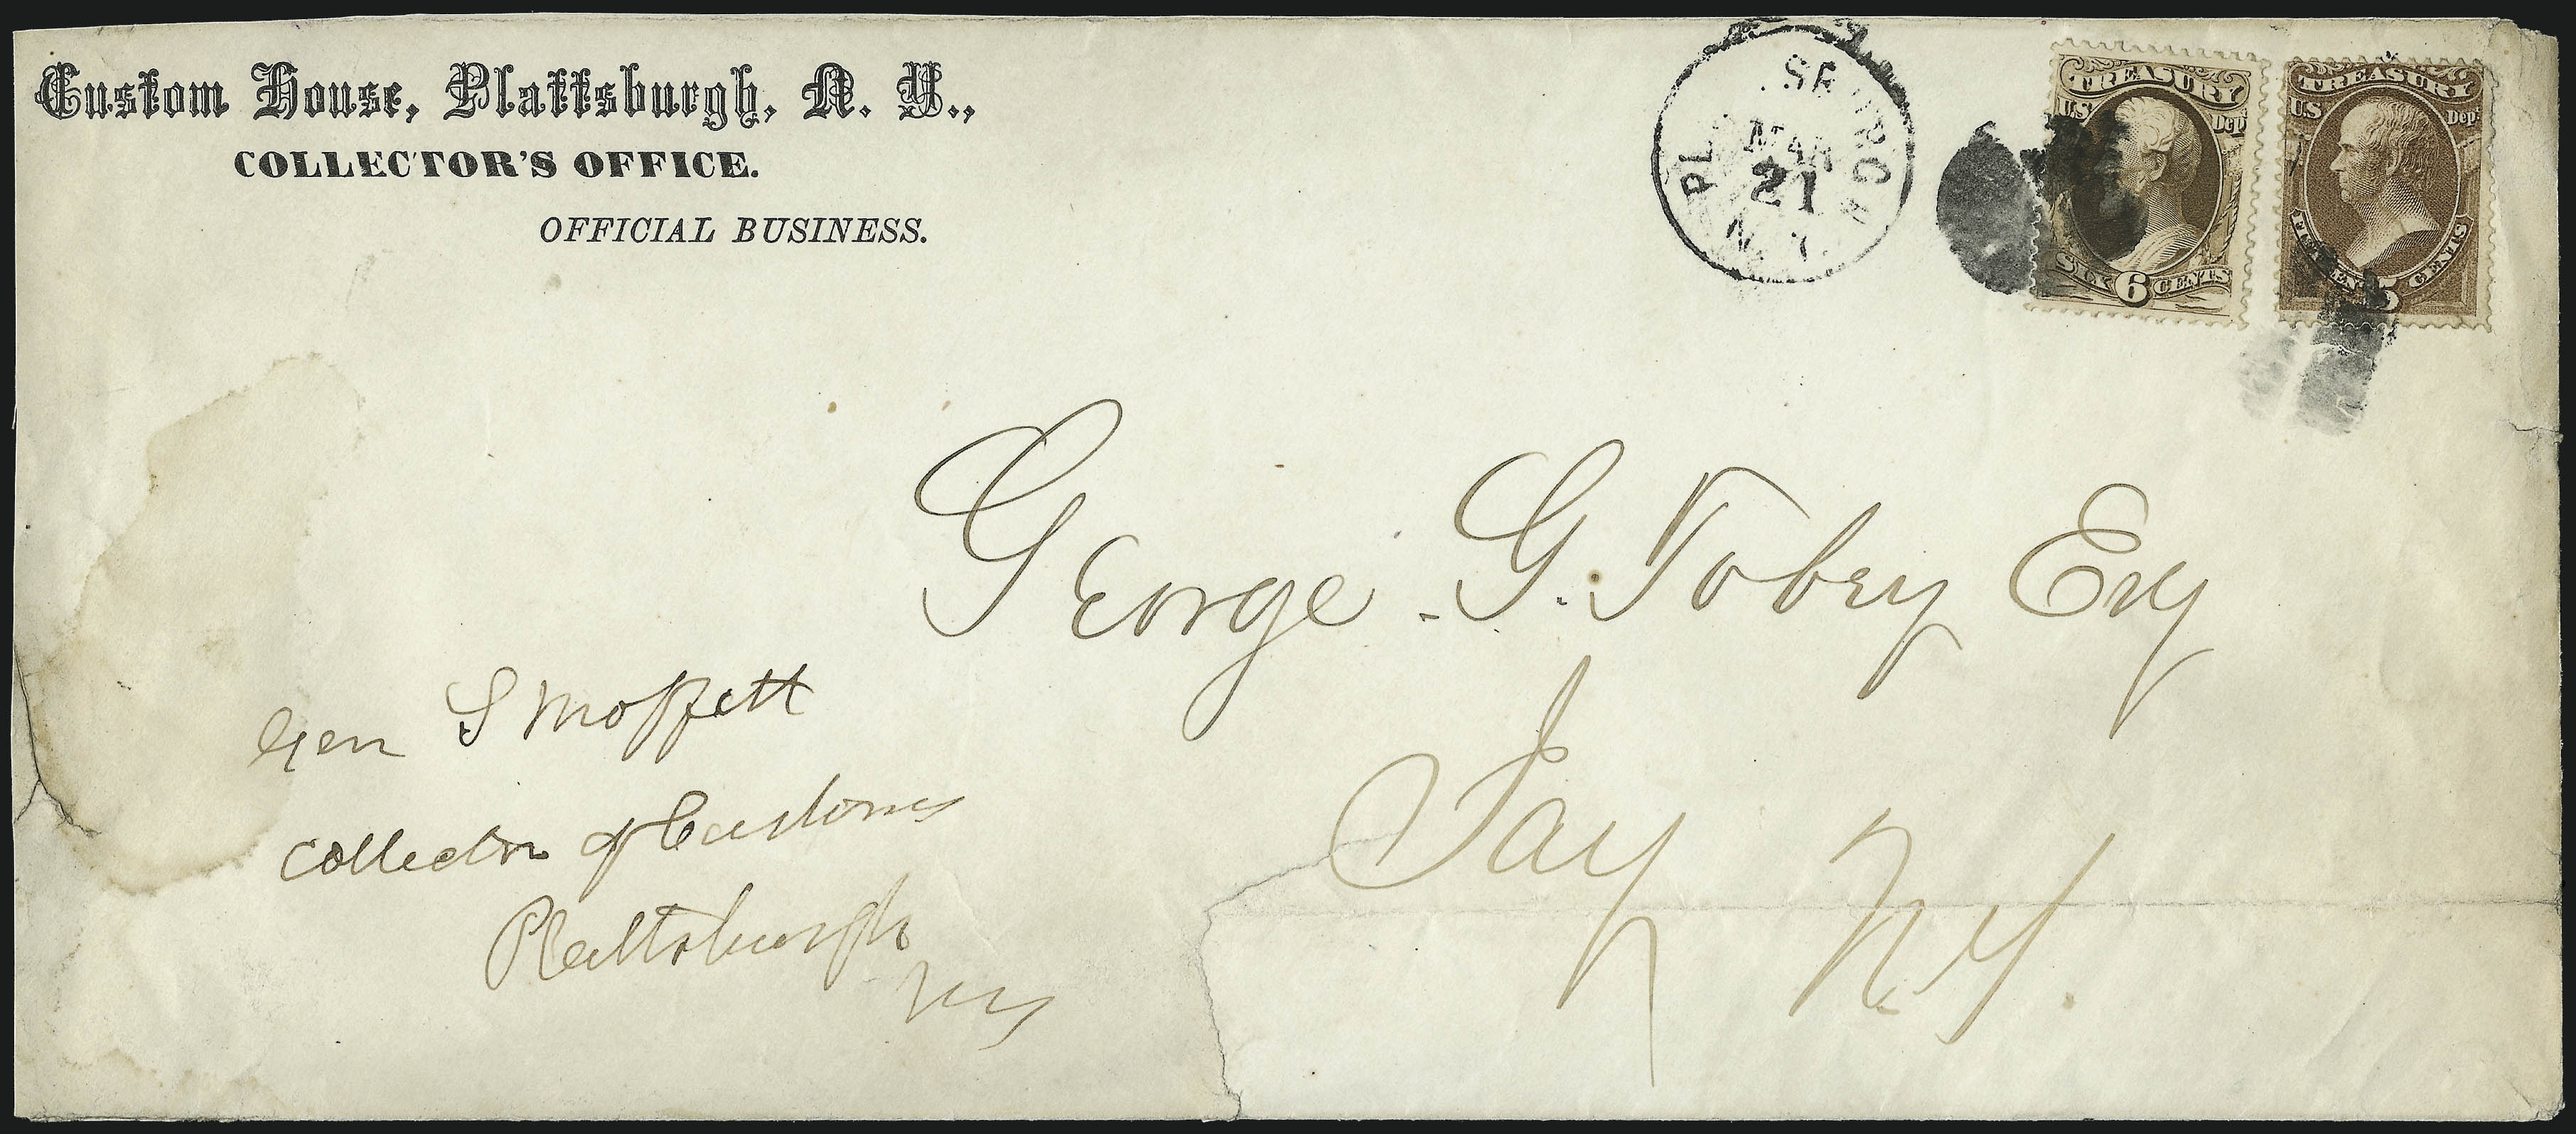 Custom House, Plattsburgh, N. Y.,
COLLECTOR'S OFFICE.
OFFICIAL BUSINESS.
PL SBURGH
MAR
21
N.Y.
TREASURY
U.S. Dep.
SIX 6 CENTS
TREASURY
U.S. Dep.
CENTS
George G. Tobey Esq
Jay N.Y.
Gen S Moffett
Collector of Customs
Plattsburgh
NY